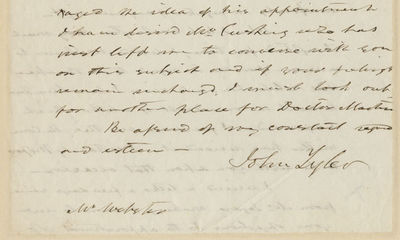 raged the idea of his appointment
I have desired Mr Cushing who has
just left me to converse with you
on this subject and if your feelings
remain unchangd. I must look out
for another place for Doctor Martin
Be assured of my constant regard
and esteem —
John Tyler
Mr Webster